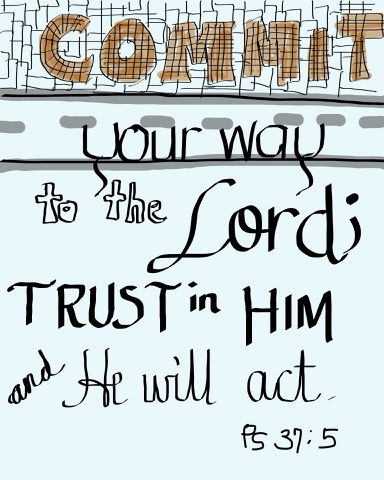 COMMIT
your way
to the Lord;
TRUST in HIM
and He will act.
Ps 37:5